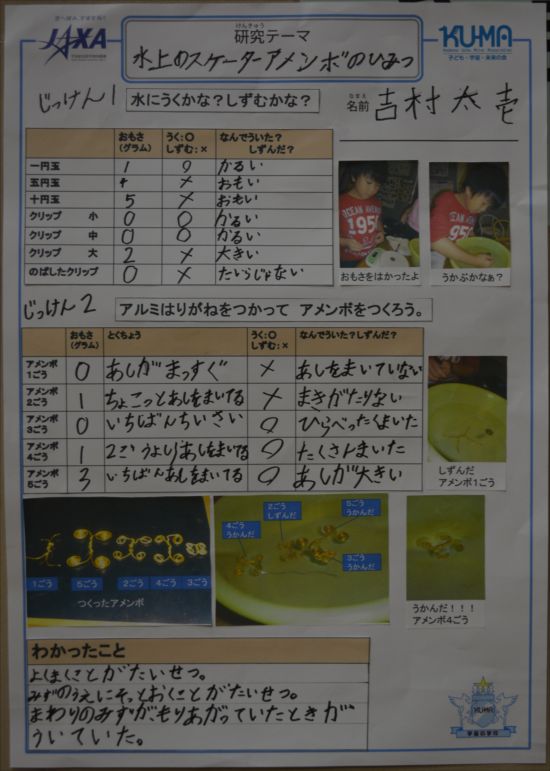 JAXA
けんきゅう
研究テーマ
水上のスケーターアメンボのひみつ
KUMA
子ども・宇宙・未来の会
じっけん1 水にうくかな?しずむかな?
なまえ
名前 吉村太壱
おもさ(グラム) うく:○ しずむ:× なんでういた? しずんだ?
一円玉 1 ○ かるい
五円玉 4 × おもい
十円玉 5 × おもい
クリップ 小 0 ○ かるい
クリップ 中 0 ○ かるい
クリップ 大 2 × 大きい
のばしたクリップ 0 × たいらじゃない
おもさをはかったよ
うかぶかなぁ?
じっけん2 アルミはりがねをつかって アメンボをつくろう。
おもさ(グラム) とくちょう うく:○ しずむ:× なんでういた?しずんだ?
アメンボ1ごう 0 あしがまっすぐ × あしをまいていない
アメンボ2ごう 1 ちょこっとあしをまいてる × まきがたりない
アメンボ3ごう 0 いちばんちいさい ○ ひらべったくまいた
アメンボ4ごう 1 2ごうよりあしをまいてる ○ たくさんまいた
アメンボ5ごう 3 いちばんあしをまいてる ○ あしが大きい
しずんだ
アメンボ1ごう
1ごう 5ごう 2ごう 4ごう 3ごう
つくったアメンボ
4ごう うかんだ
2ごう しずんだ
5ごう うかんだ
3ごう うかんだ
うかんだ!!!
アメンボ4ごう
わかったこと
よくまくことがたいせつ。
みずのうえにそっとおくことがたいせつ。
まわりのみずがもりあがっていたときが
ういていた。
KUMA
宇宙の学校